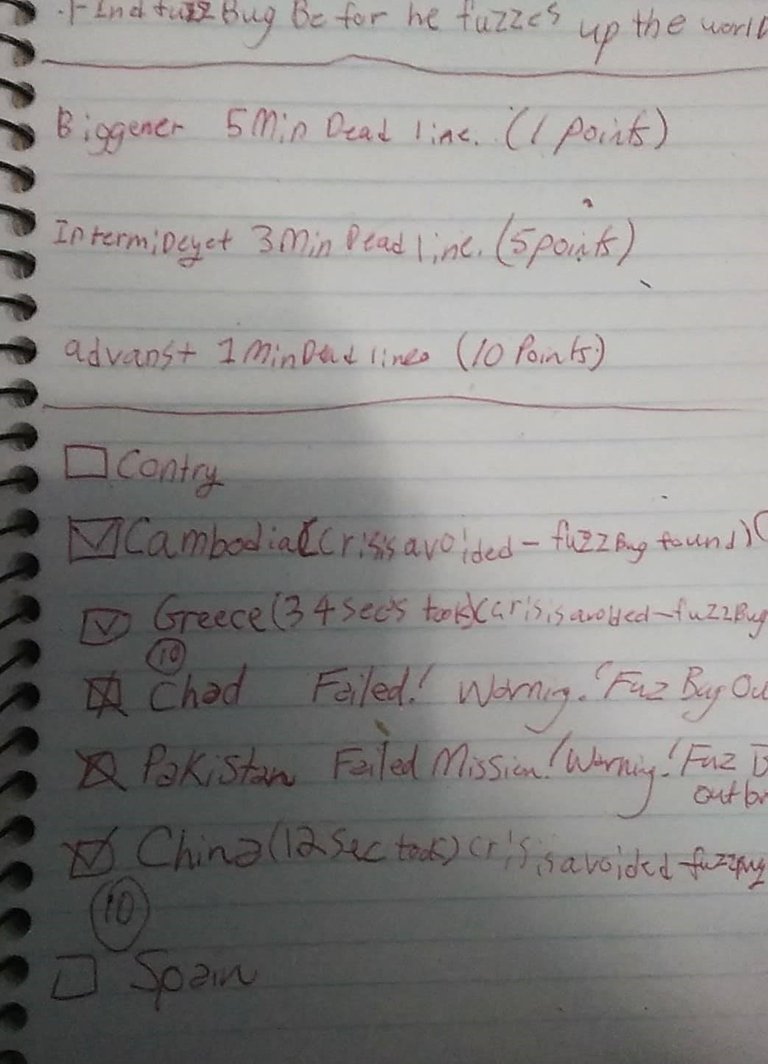 .Find fuzz Bug Be for he fuzzes up the world
Biggener 5 Min Dead line. (1 points)
IntermiDeyet 3 Min Dead line. (5 points)
advanst 1 Min Dead lines (10 Points)
Contry
Cambodia (crisis avoided - fuzz Bug found) (
Greece (34 sec's took) (crisis avoided - fuzz Bug
10
Chad Failed! Warnig! Fuz Bug Ou
Pakistan Failed Mission! Warnig! Fuz B
outbr
China (12 sec took) crisis avoided - fuzz Bug
10
Spain